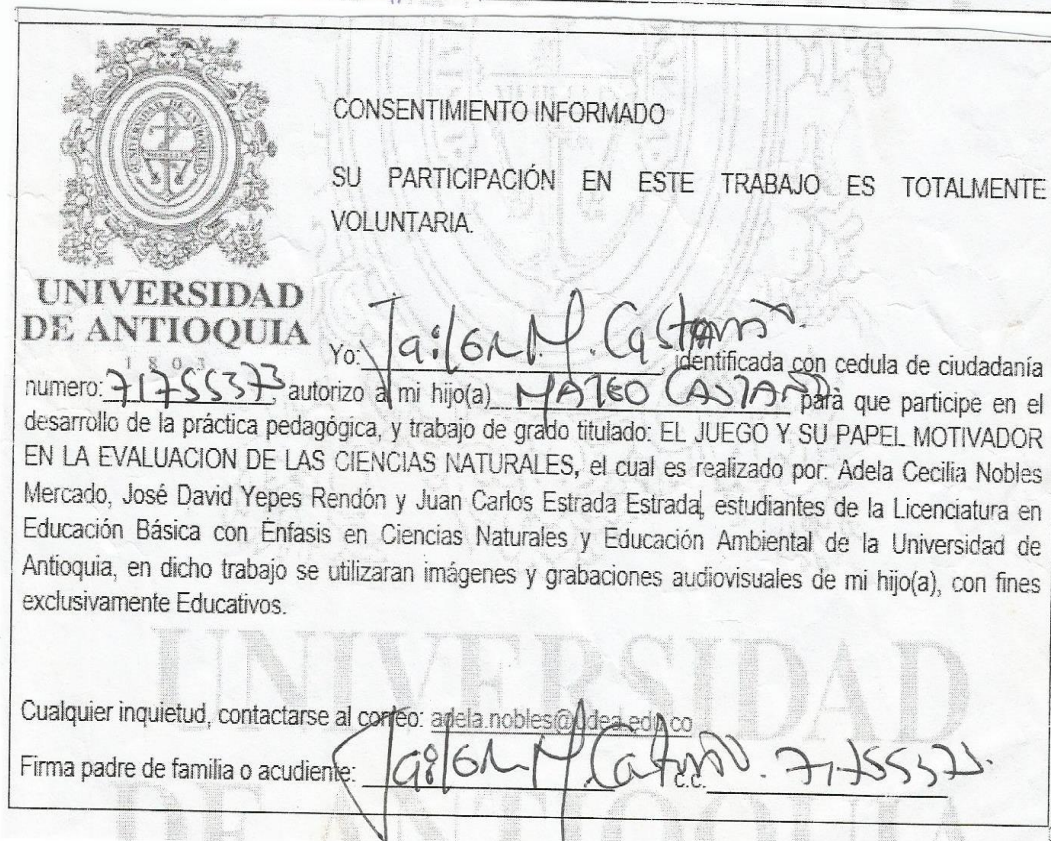 CONSENTIMIENTO INFORMADO
SU PARTICIPACIÓN EN ESTE TRABAJO ES TOTALMENTE
VOLUNTARIA.
UNIVERSIDAD
DE ANTIOQUIA
1803
Yo: Jailon M. Castaño. identificada con cedula de ciudadanía
numero: 71755373, autorizo a mi hijo(a) MATEO CASTAÑO para que participe en el
desarrollo de la práctica pedagógica, y trabajo de grado titulado: EL JUEGO Y SU PAPEL MOTIVADOR
EN LA EVALUACION DE LAS CIENCIAS NATURALES, el cual es realizado por: Adela Cecilia Nobles
Mercado, José David Yepes Rendón y Juan Carlos Estrada Estrada, estudiantes de la Licenciatura en
Educación Básica con Énfasis en Ciencias Naturales y Educación Ambiental de la Universidad de
Antioquia, en dicho trabajo se utilizaran imágenes y grabaciones audiovisuales de mi hijo(a), con fines
exclusivamente Educativos.
UNIVERSIDAD
Cualquier inquietud, contactarse al correo: adela.nobles@udea.edu.co
Firma padre de familia o acudiente: Jailon M. Castaño. c.c. 71755373.
DE ANTIOQUIA